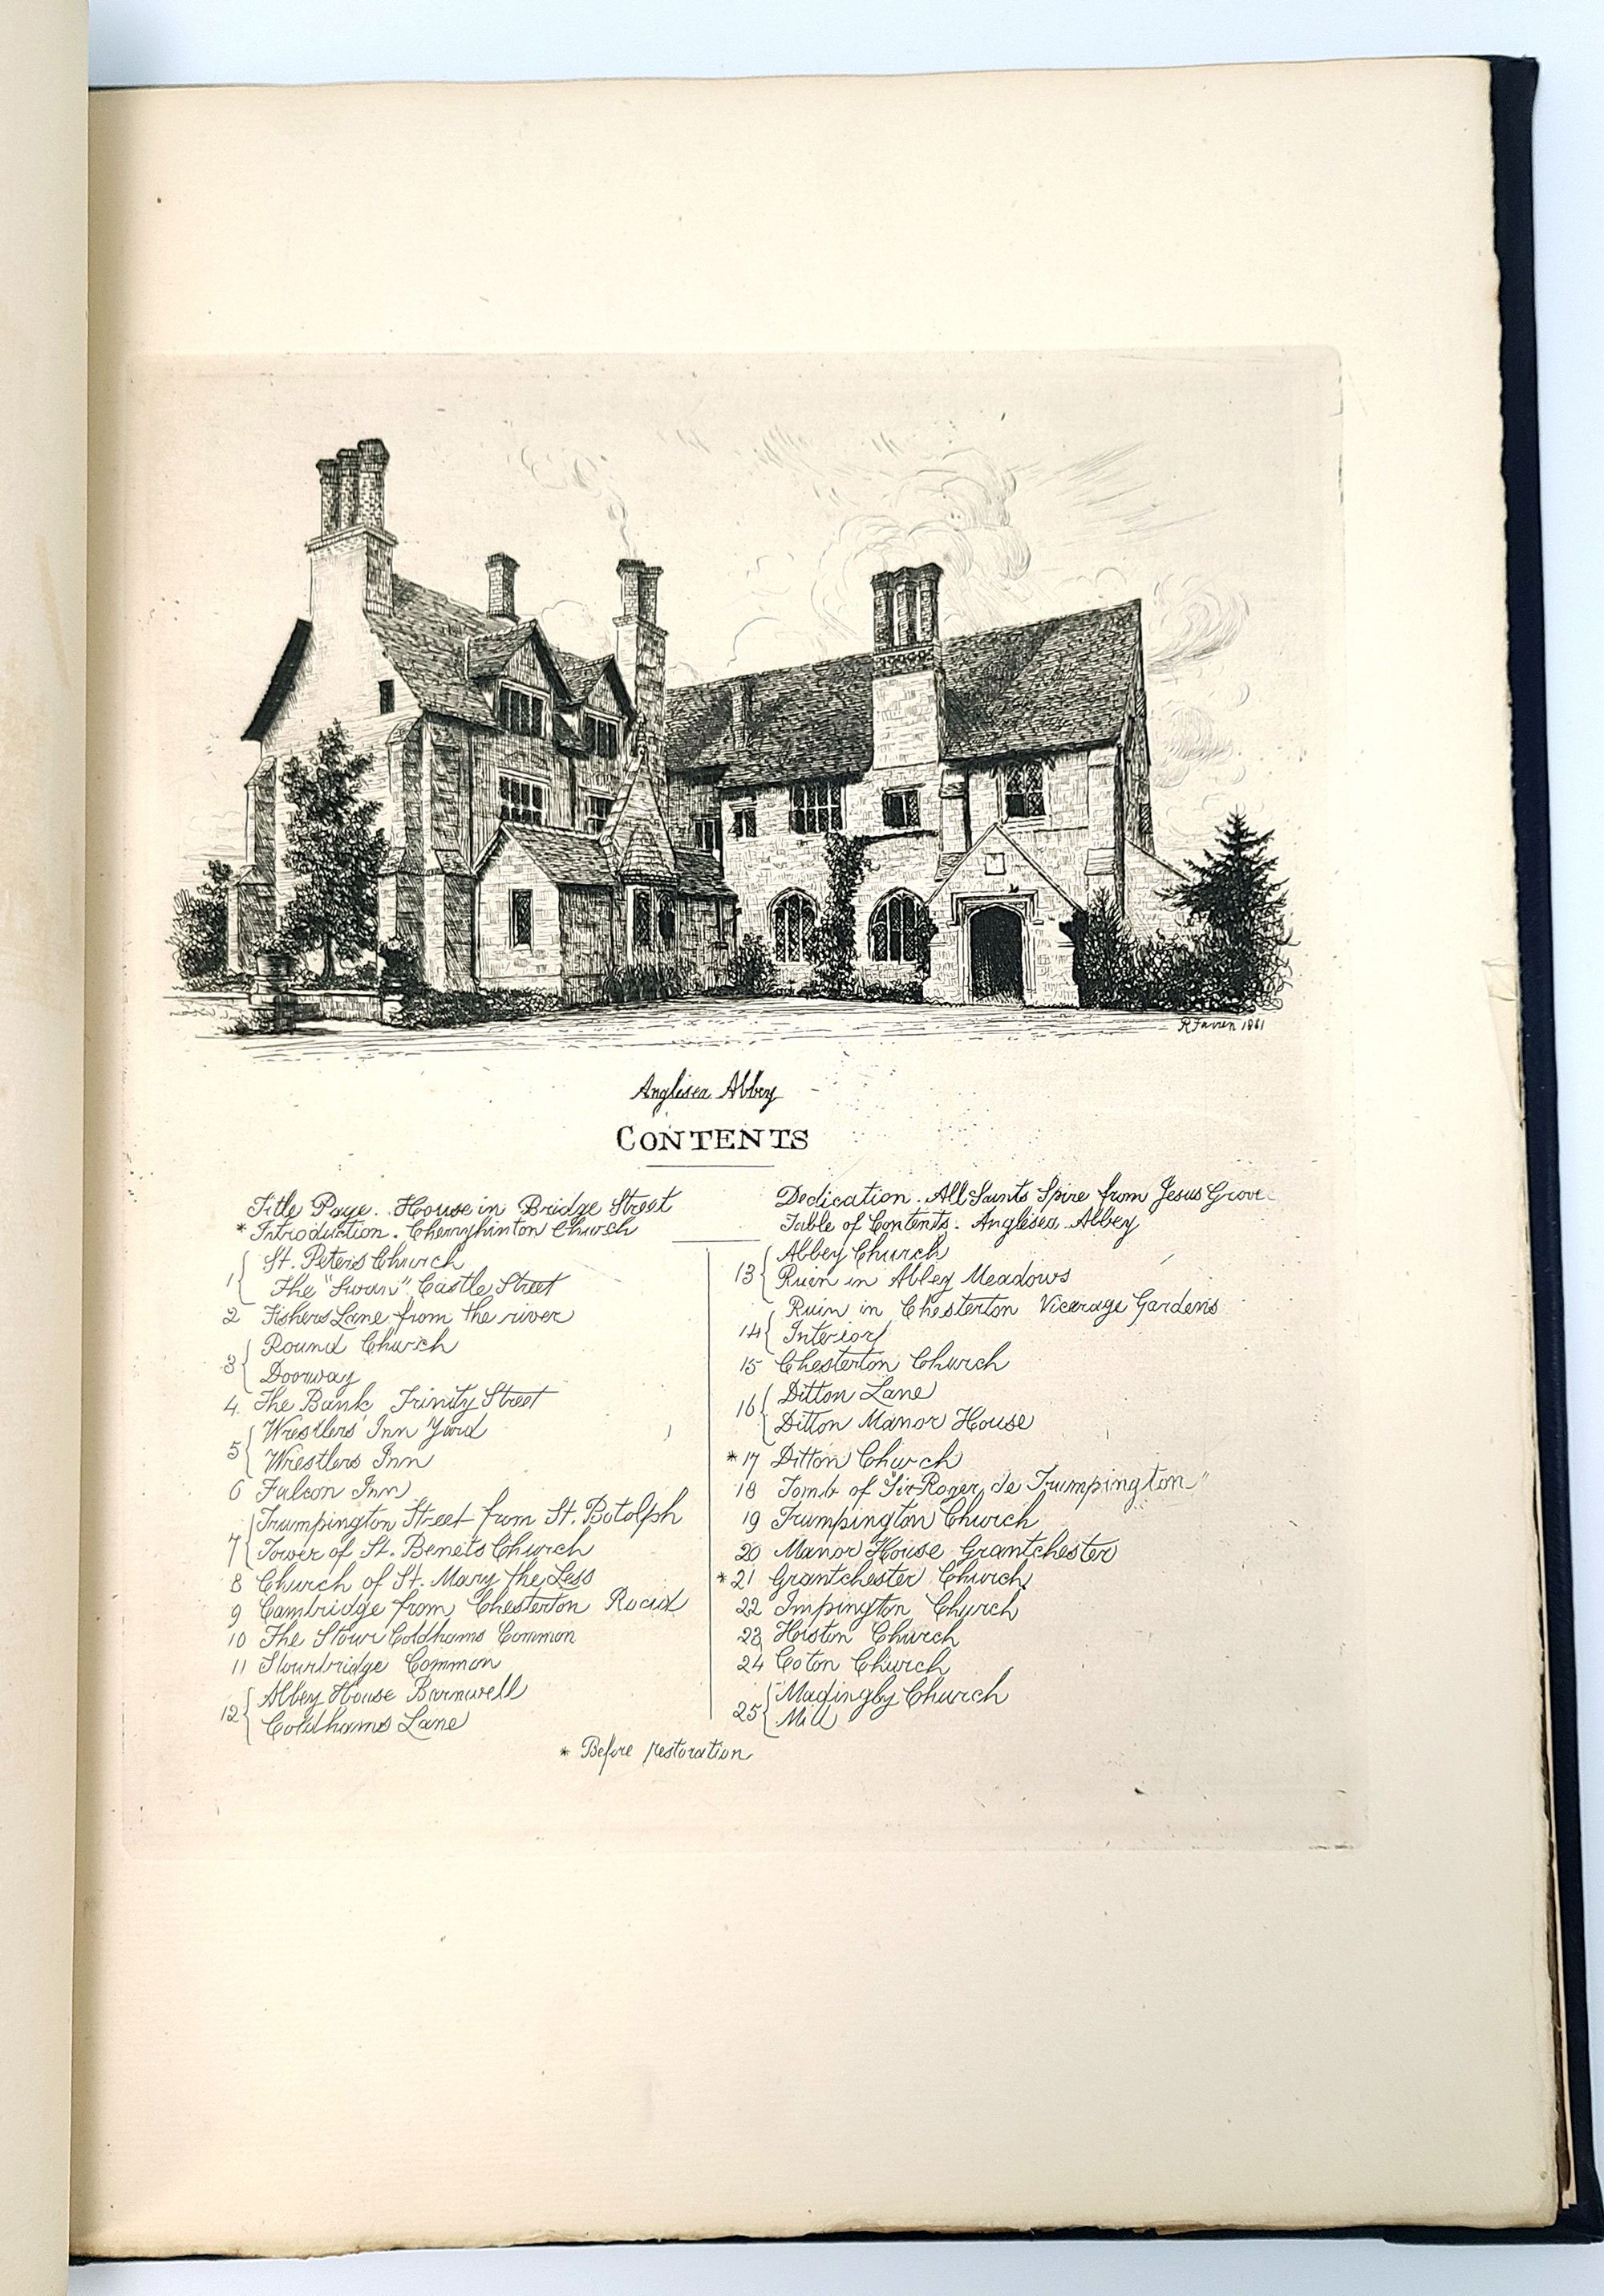 R Farren 1881
Anglesea Abbey
CONTENTS
Title Page. House in Bridge Street
* Introduction. Cherryhinton Church
1 { St. Peters Church
The "Swan" Castle Street
2 Fishers Lane from the river
3 { Round Church
Doorway
4 The Bank Trinity Street
5 { Wrestlers Inn Yard
Wrestlers Inn
6 Falcon Inn
7 { Trumpington Street from St. Botolph
Tower of St. Benets Church
8 Church of St. Mary the Less
9 Cambridge from Chesterton Road
10 The Stour Coldhams Common
11 Stourbridge Common
12 { Abbey House Barnwell
Coldhams Lane
Dedication. All Saints Spire from Jesus Grove
Table of Contents. Anglesea Abbey
13 { Abbey Church
Ruin in Abbey Meadows
14 { Ruin in Chesterton Vicarage Gardens
Interior
15 Chesterton Church
16 { Ditton Lane
Ditton Manor House
* 17 Ditton Church
18 Tomb of "Sir Roger de Trumpington"
19 Trumpington Church
20 Manor House Grantchester
* 21 Grantchester Church
22 Impington Church
23 Histon Church
24 Coton Church
25 { Madingley Church
Mill
* Before restoration